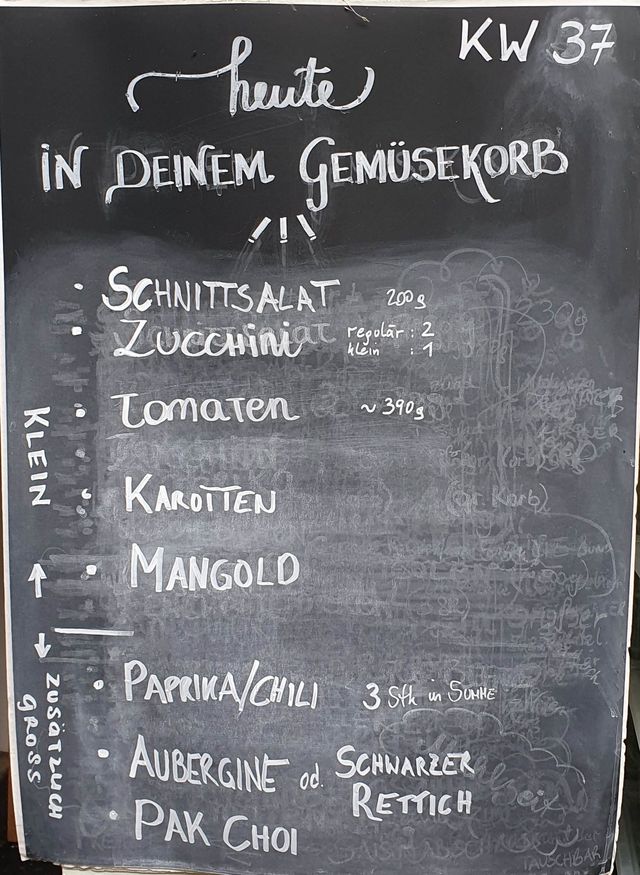 KW 37
heute
IN DEINEM GEMÜSEKORB
• SCHNITTSALAT 200g
• ZUCCHINI regulär : 2
klein : 1
• TOMATEN ~ 390g
• KAROTTEN
• MANGOLD
KLEIN ↑
↓ ZUSÄTZLICH GROSS
• PAPRIKA/CHILI 3 Stk in SUMME
• AUBERGINE od. SCHWARZER
RETTICH
• PAK CHOI
TAUSCHBAR